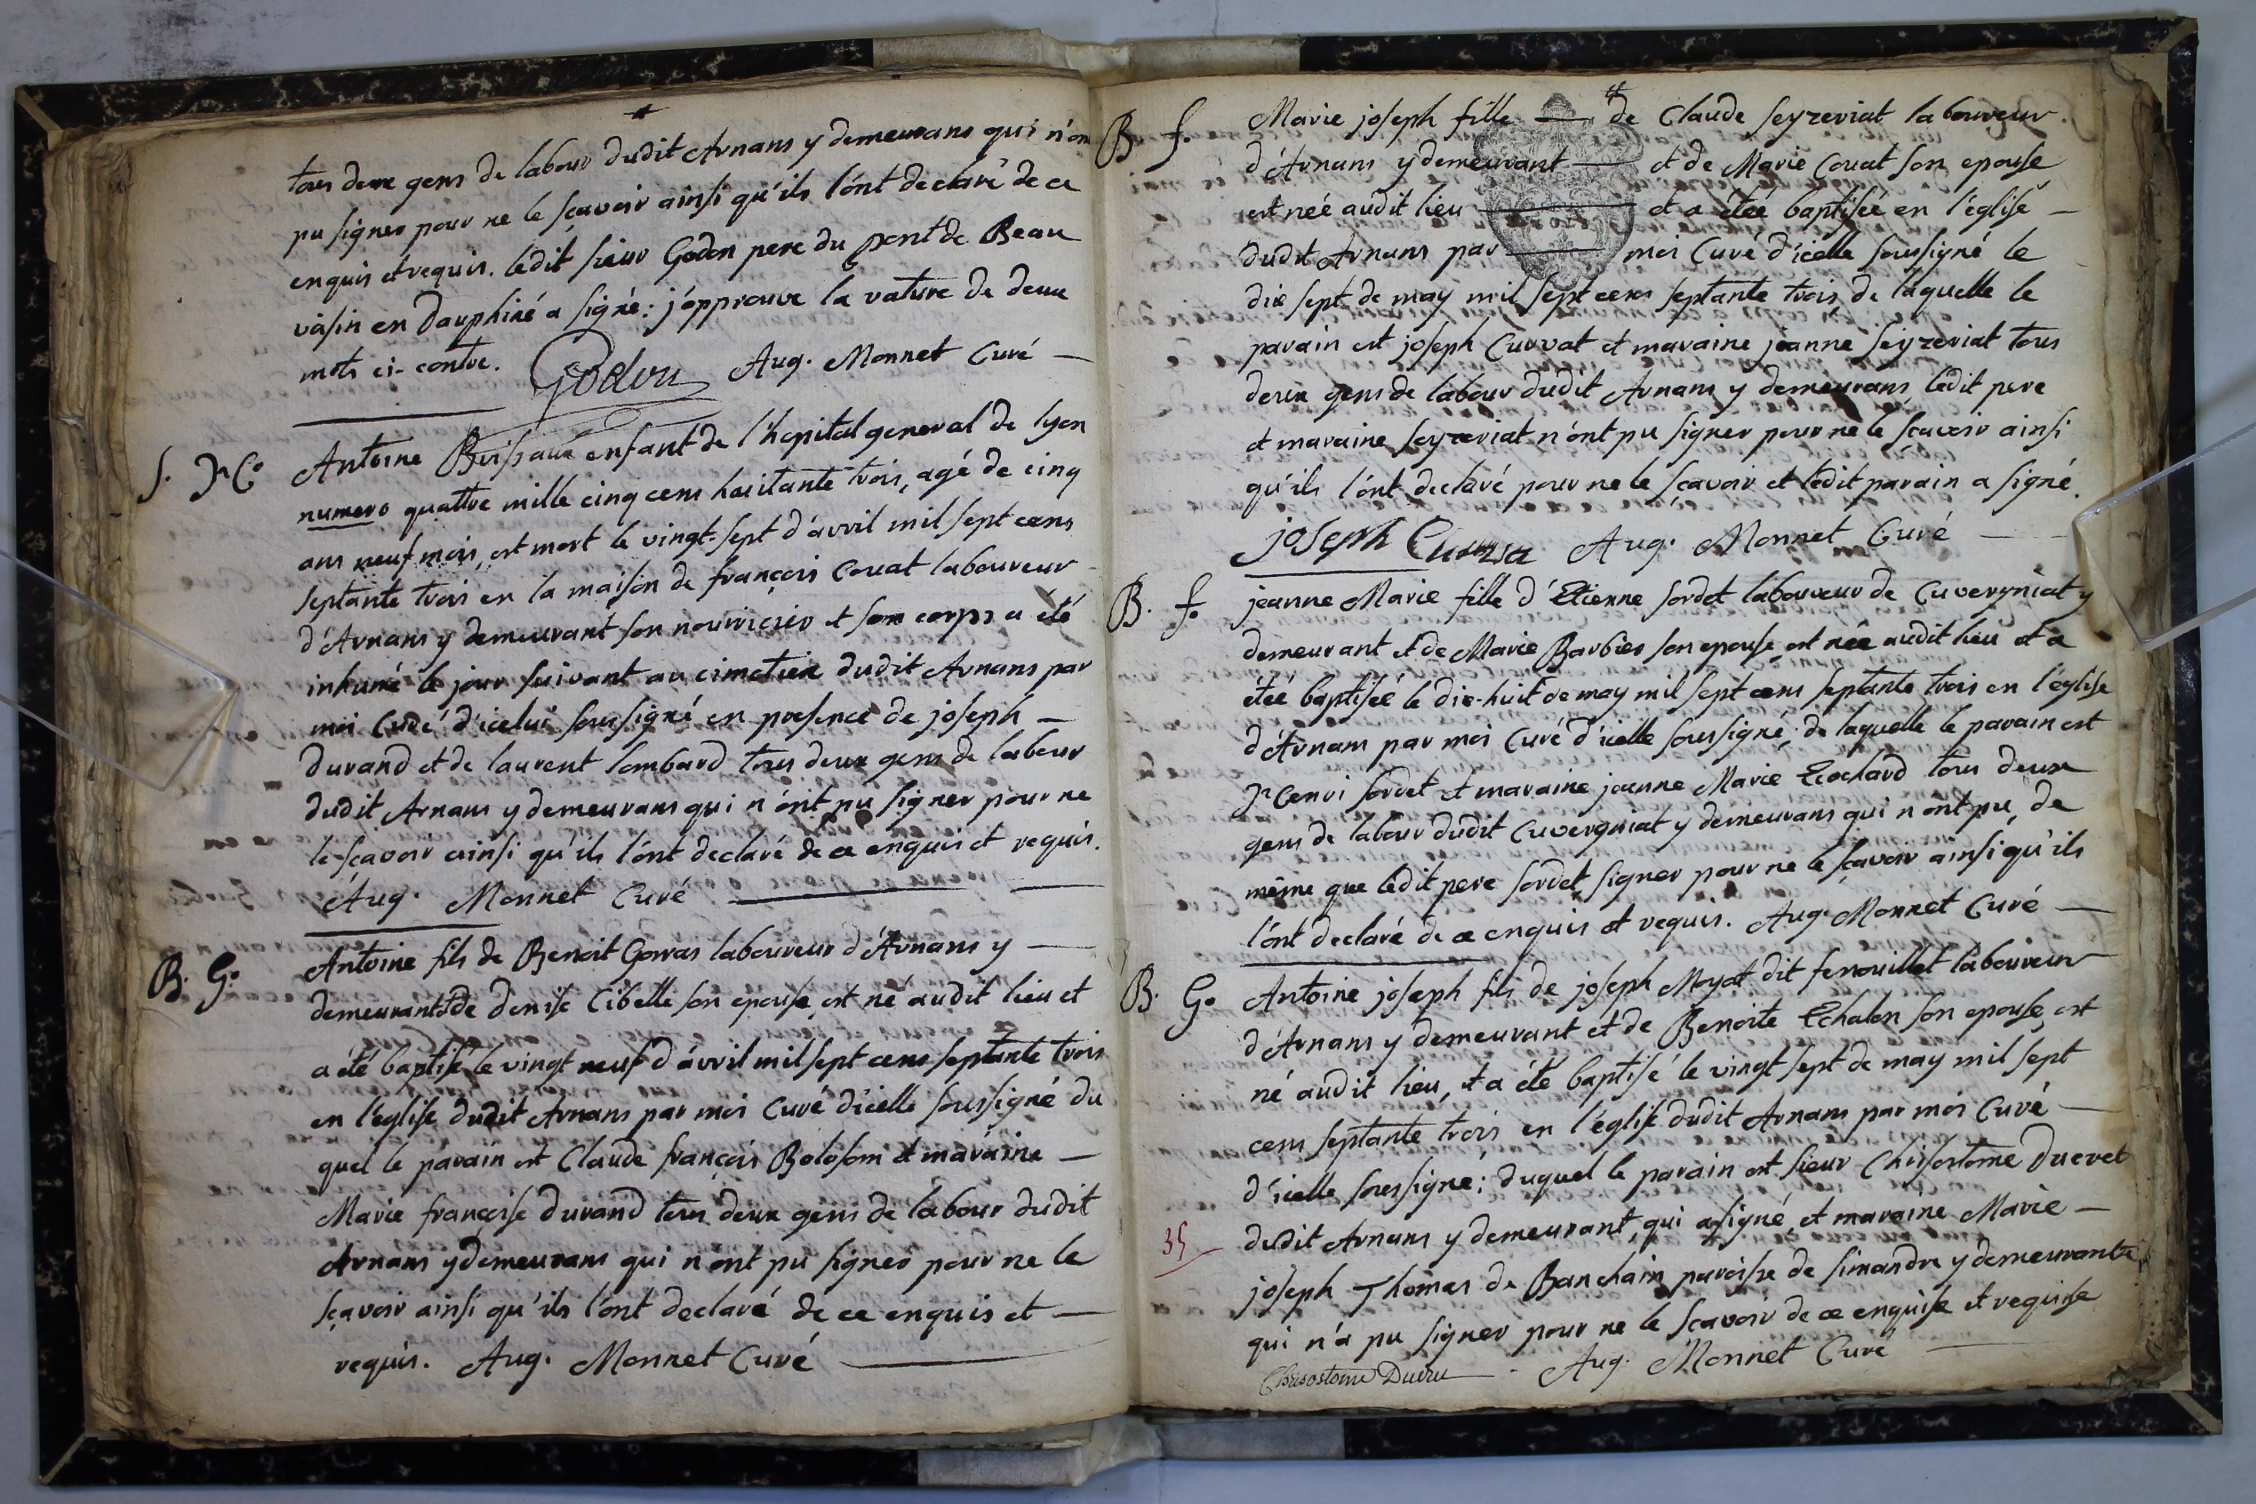 tous deux gens de labour dudit Arnans y demeurans qui n'ont
pu signer pour ne le sçavoir ainsi qu'ils l'ont declaré de ce
enquis et requis. ledit sieur Godon pere du pont de Beau
vasin en Dauphiné a signé: j'approuve la rature de deux
mots ci-contre. Godon Aug. Monnet Curé
S. H^o Antoine enfant de l'hopital general de lyon
numero quattre mille cinq cens huitante trois, agé de cinq
ans neuf mois, est mort le vingt-sept d'avril mil sept cens
septante trois en la maison de françois Couat laboureur
d'Arnans y demeurant son nourricier et son corps a été
inhumé le jour suivant au cimetiere dudit Arnans par
moi Curé d'icelui soussigné en presence de joseph
Durand et de laurent lombard tous deux gens de labour
dudit Arnans y demeurans qui n'ont pu signer pour ne
le sçavoir ainsi qu'ils l'ont declaré de ce enquis et requis.
Aug. Monnet Curé
B. G. Antoine fils de Benoit Gorras laboureur d'Arnans y
demeurant et de denise Cibelle son epouse, est né audit lieu et
a été baptisé le vingt neuf d'avril mil sept cens septante trois
en l'eglise dudit Arnans par moi Curé d'icelle soussigné du
quel le parain est Claude françois Bolosom et maraine
Marie françoise Durand tous deux gens de labour dudit
Arnans y demeurans qui n'ont pu signer pour ne le
sçavoir ainsi qu'ils l'ont declaré de ce enquis et
requis. Aug. Monnet Curé
B. f. Marie joseph fille de Claude Seyzeriat laboureur
d'Arnans y demeurant et de Marie Couat son epouse
est neé audit lieu et a eteé baptiseé en l'eglise
dudit Arnans par moi Curé d'icelle soussigné le
dix sept de may mil sept cens septante trois de laquelle le
parain est joseph Curvat et maraine jeanne Seyzeriat tous
deux gens de labour dudit Arnans y demeurans, ledit pere
et maraine Seyzeriat n'ont pu signer pour ne le sçavoir ainsi
qu'ils l'ont declaré pour ne le sçavoir et ledit parain a signé.
joseph Aug. Monnet Curé
B. f. jeanne Marie fille d'Etienne Sordet laboureur de Cuvergniat y
demeurant et de Marie Barbier son epouse, est neé audit lieu et a
eteé baptiseé le dix-huit de may mil sept cens septante trois en l'eglise
d'Arnans par moi Curé d'icelle soussigné; de laquelle le parain est
Henri Sordet et maraine jeanne Marie Ecochard tous deux
gens de labour dudit Cuvergniat y demeurans qui n'ont pu, de
même que ledit pere Sordet, signer pour ne le sçavoir ainsi qu'ils
l'ont declaré de ce enquis et requis. Aug. Monnet Curé
B. G. Antoine joseph fils de joseph Moyat dit fenouillet laboureur
d'Arnans y demeurant et de Benoite Echalon son epouse, est
né audit lieu, et a été baptisé le vingt sept de may mil sept
cens septante trois en l'eglise dudit Arnans par moi Curé
d'icelle soussigné; duquel le parain est sieur Chrisostome Ducret
dudit Arnans y demeurant, qui a signé, et maraine Marie
35
joseph Thomas de Banchain paroisse de Simandre y demeurante,
qui n'a pu signer pour ne le sçavoir de ce enquise et requise
Chrisostome Ducret Aug. Monnet Curé